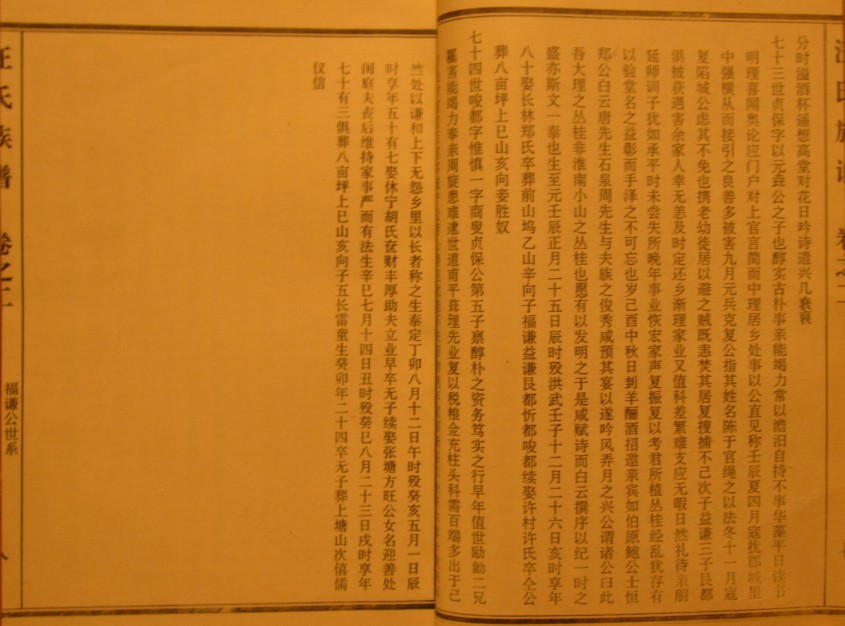 汪氏族谱 卷之二
分时溢酒杯遥想高堂对花日吟诗遣兴几衰衰
七十三世贞保字以元垚公之子也醇实古朴事亲能竭力常以澹泊自持不事华藻平日读书
明理喜闻奥论应门户对上官言简而中理居乡处事以公直见称壬辰夏四月寇扰郡城里
中强横从而接引之良善多被害九月元兵克复公指其姓名陈于官绳之以法冬十一月寇
复陷城公虑其不免也携老幼徙居以避之贼既恚焚其居复搜捕不已次子益谦三子艮都
俱被获遇害余家人幸无恙及时定还乡渐理家业又值科差繁难支应无暇日然礼待亲朋
延师训子犹如承平时未尝失所晚年事业恢宏家声复振复以考君所植丛桂经乱犹存有
以验堂名之益彰而手泽之不可忘也岁己酉中秋日刲羊酾酒招邀亲宾如伯原鲍公士恒
郑公白云唐先生石泉周先生与夫族之俊秀咸预其宴以遂吟风弄月之兴公谓诸公曰此
吾大理之丛桂非淮南小山之丛桂也愿有以发明之于是咸赋诗而白云撰序以纪一时之
盛亦斯文一泰也生至元壬辰正月二十五日辰时殁洪武壬子十二月二十六日亥时享年
八十娶长林郑氏卒葬前山坞乙山辛向子福谦益谦艮都忻都唆都续娶许村许氏卒仝公
葬八亩坪上巳山亥向妾胜奴
七十四世唆都字惟慎一字商叟贞保公第五子禀醇朴之资务笃实之行早年值世励勷二兄
罹害能竭力奉亲周旋患难逮世道甫平葺理先业复以税粮佥充柱头科需百端多出于己
然处以谦和上下无怨乡里以长者称之生泰定丁卯八月十二日午时殁癸亥五月一日辰
时享年五十有七娶休宁胡氏奁财丰厚助夫立业早卒无子续娶张塘方旺公女名迎善处
闺庭夫丧后维持家事严而有法生辛巳七月十四日丑时殁癸巳八月二十三日戌时享年
七十有三俱葬八亩坪上巳山亥向子五长雷童生癸卯年二十四卒无子葬上塘山次僖儒
仪信
汪氏族谱 卷之二
福谦公世系
八